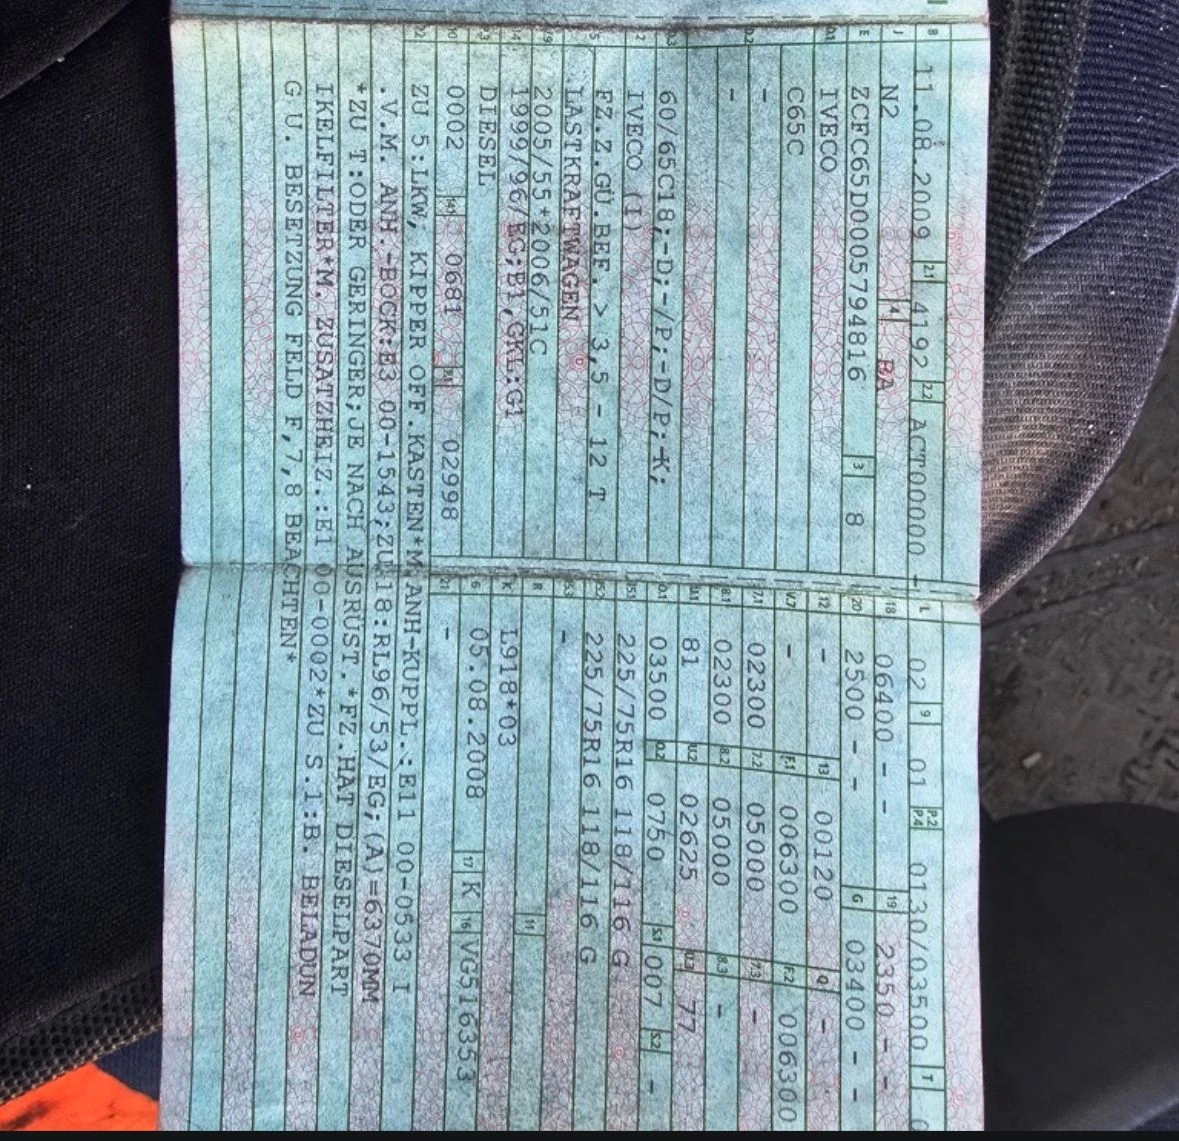 B 11.08.2009 2.1 4192 2.2 ACT00000 -
J N2 4 BA
E ZCFC65D0005794816 3 8
D.1 IVECO
C65C
D.2 -
-
D.3 60/65C18;-D;-/P;-D/P;-K;
2 IVECO (I)
5 FZ.Z.GÜ.BEF. > 3,5 - 12 T
LASTKRAFTWAGEN
V.9 2005/55*2006/51C
14 1999/96/EG;B1,GKL:G1
P.3 DIESEL
10 0002 14.1 0681 P.1 02998
22 ZU 5:LKW, KIPPER OFF.KASTEN*M.ANH-KUPPL.:E11 00-0533 I
.V.M. ANH.-BOCK:E3 00-1543;ZU 18:RL96/53/EG;(A)=6370MM
*ZU T:ODER GERINGER;JE NACH AUSRÜST.*FZ.HAT DIESELPART
IKELFILTER*M. ZUSATZHEIZ.:E1 00-0002*ZU S.1:B. BELADUN
G U. BESETZUNG FELD F,7,8 BEACHTEN*
L 02 9 01 P.2 P.4 0130/03500 T 0
18 06400 - - 19 2350 - -
20 2500 - - G 03400 - -
12 - 13 00120 Q -
V.7 - F.1 006300 F.2 006300
7.1 02300 7.2 05000 7.3 -
8.1 02300 8.2 05000 8.3 -
U.1 81 U.2 02625 U.3 77
O.1 03500 O.2 0750 S.1 007 S.2 -
15.1 225/75R16 118/116 G
15.2 225/75R16 118/116 G
15.3 -
R 11
K L918*03
6 05.08.2008 17 K 16 VG516353
21 -